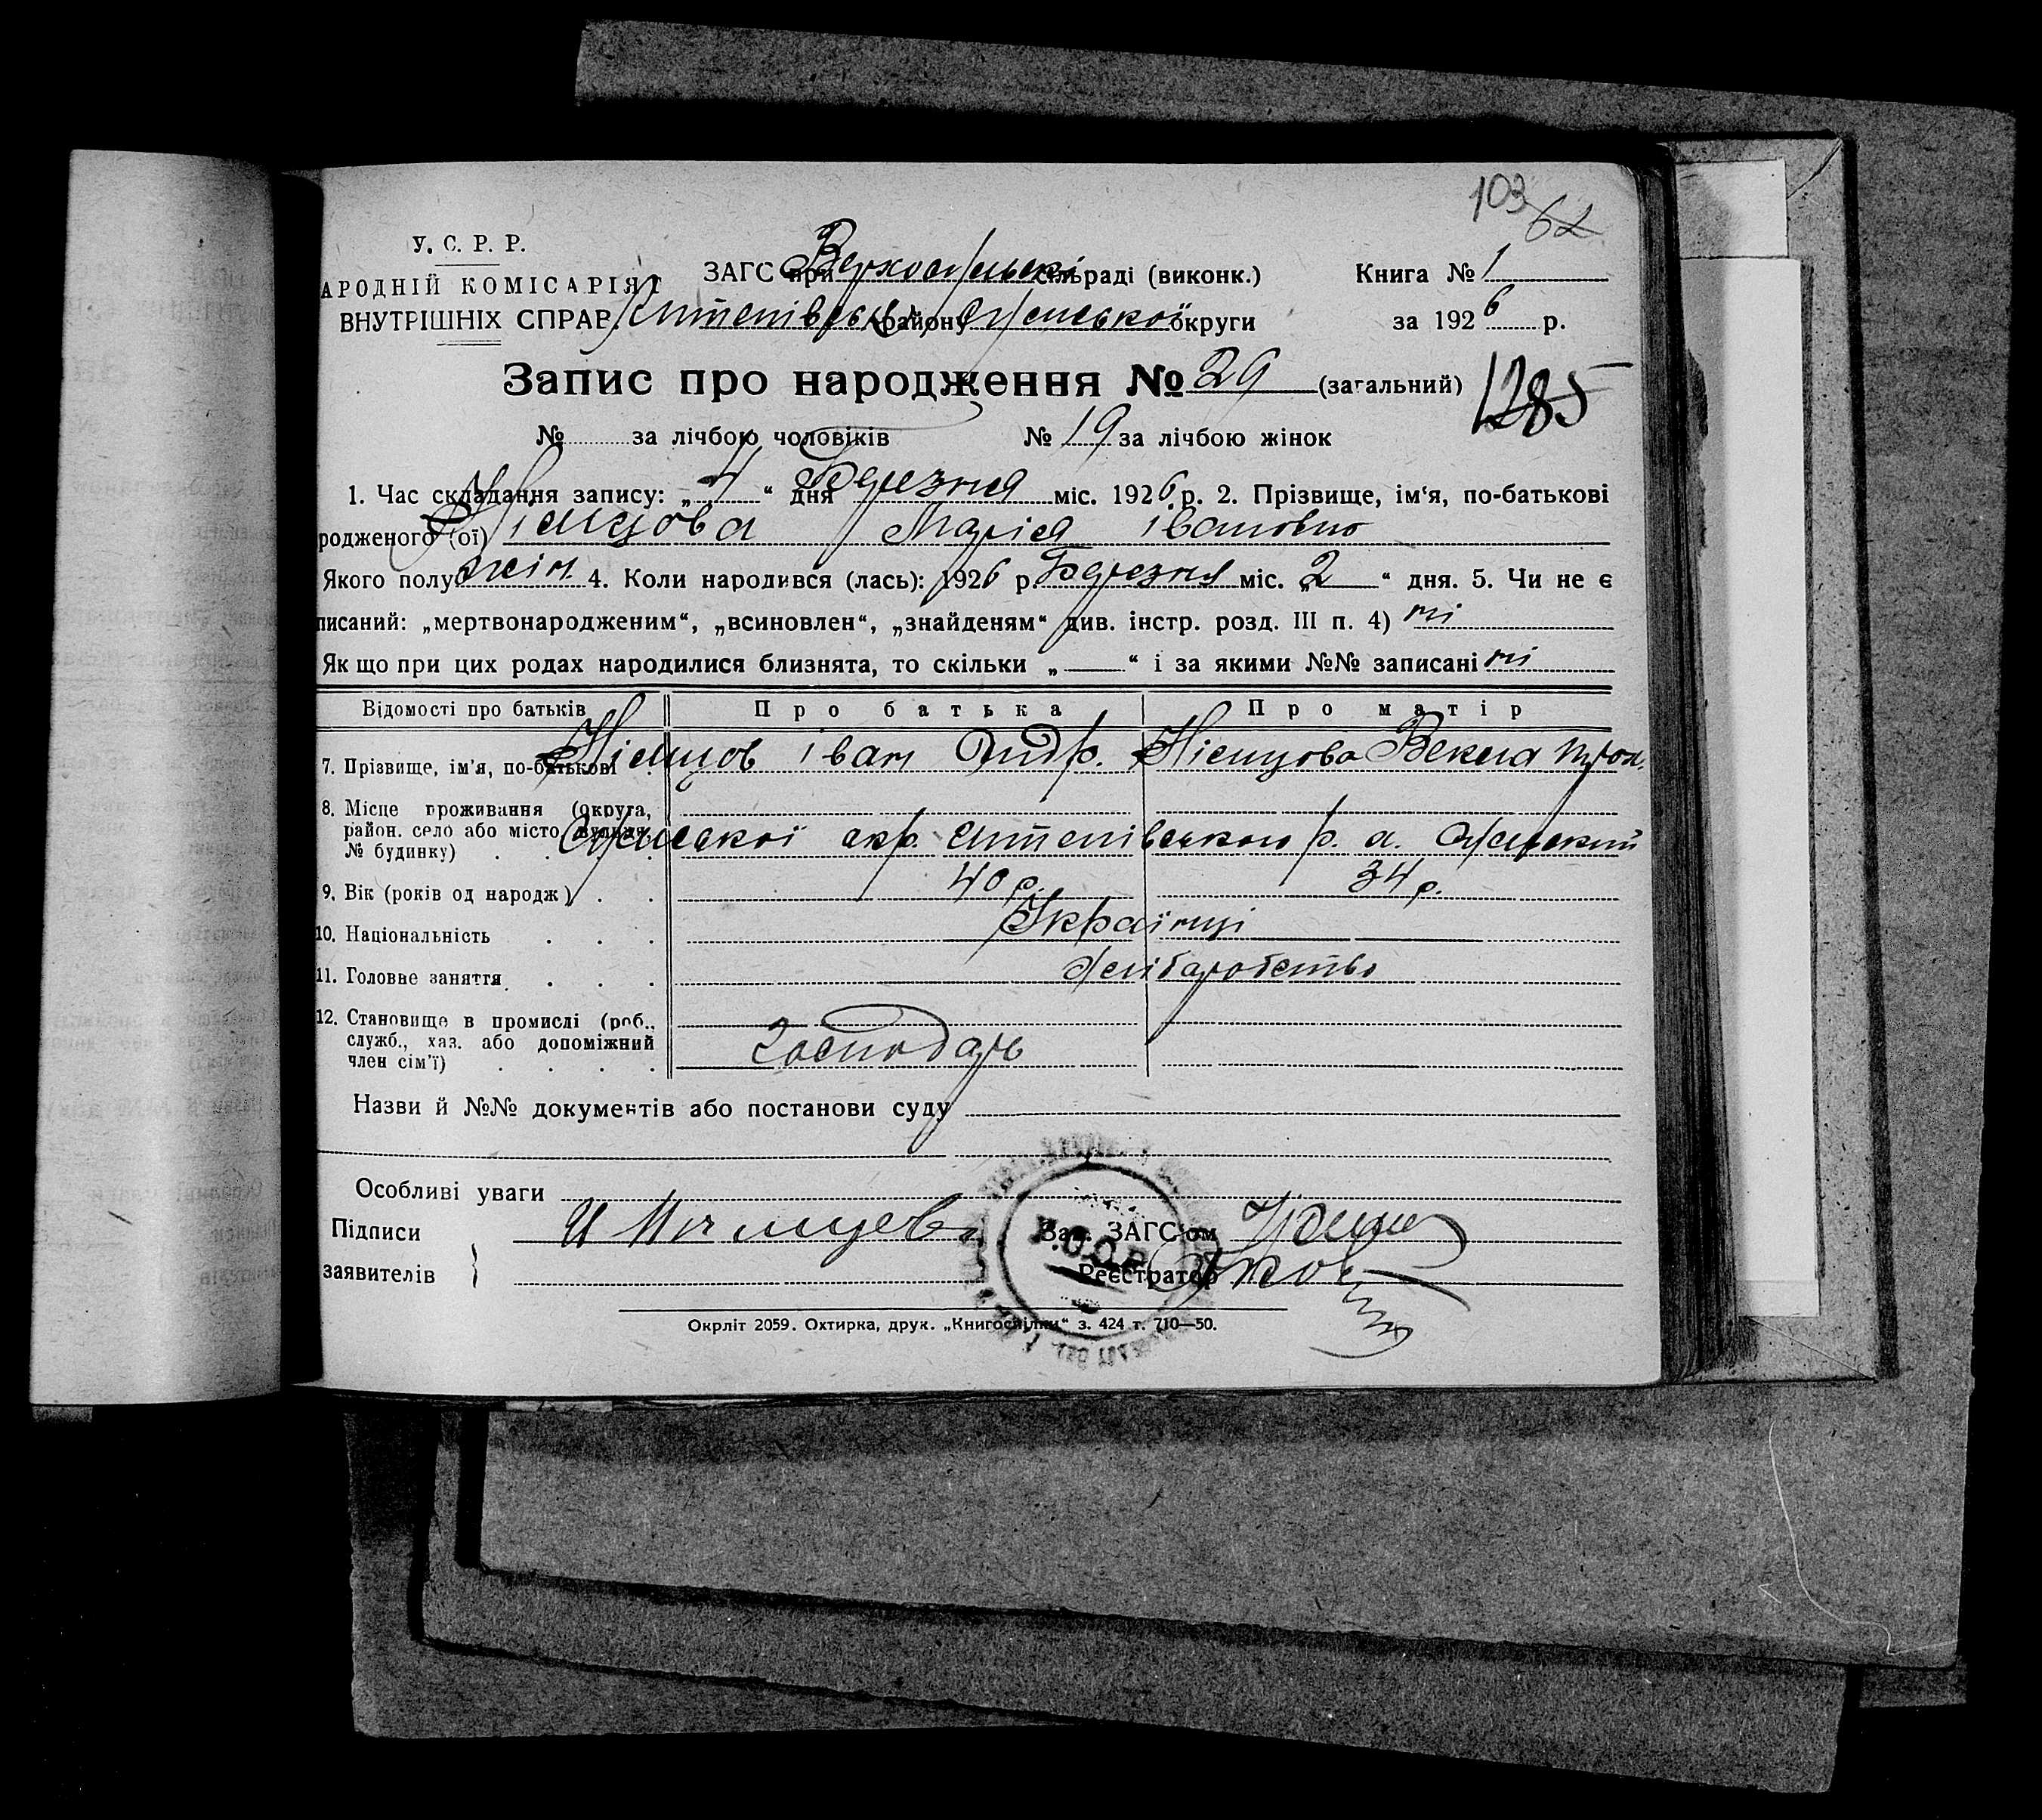 103 62
У. С. Р. Р.
АРОДНІЙ КОМІСАРІЯТ
ВНУТРІШНІХ СПРАВ
ЗАГС при сільраді (виконк.)
району округи
Книга № 1
за 1926 р.
Запис про народження № 29 (загальний)
1285
№ за лічбою чоловіків № 19 за лічбою жінок
1. Час складання запису: „4“ дня Березня міс. 1926 р. 2. Прізвище, ім'я, по-батькові
родженого (ої) Нємцова Марія Івановно
Якого полу жін. 4. Коли народився (лась): 1926 р. Березня міс. „2“ дня. 5. Чи не є
писаний: „мертвонародженим“, „всиновлен“, „знайденям“ див. інстр. розд. III п. 4) ні
Якщо при цих родах народилися близнята, то скільки „—“ і за якими №№ записані ні
Відомості про батьків Про батька Про матір
7. Прізвище, ім'я, по-батькові Нємцов Іван Андр. Нємцова Векла
8. Місце проживання (округа,
район. село або місто, вулиця,
№ будинку) окр. р.
9. Вік (років од народж) 40 р. 34 р.
10. Національність Українці
11. Головне заняття Хліборобство
12. Становище в промислі (роб.,
служб., хаз. або допоміжний
член сім'ї) Господарь
Назви й №№ документів або постанови суду
Особливі уваги
Підписи
заявителів
Зав. ЗАГС'ом
Реєстратор
У.С.С.Р.
Окрліт 2059. Охтирка, друк. „Книгоспілки“ з. 424 т. 710—50.